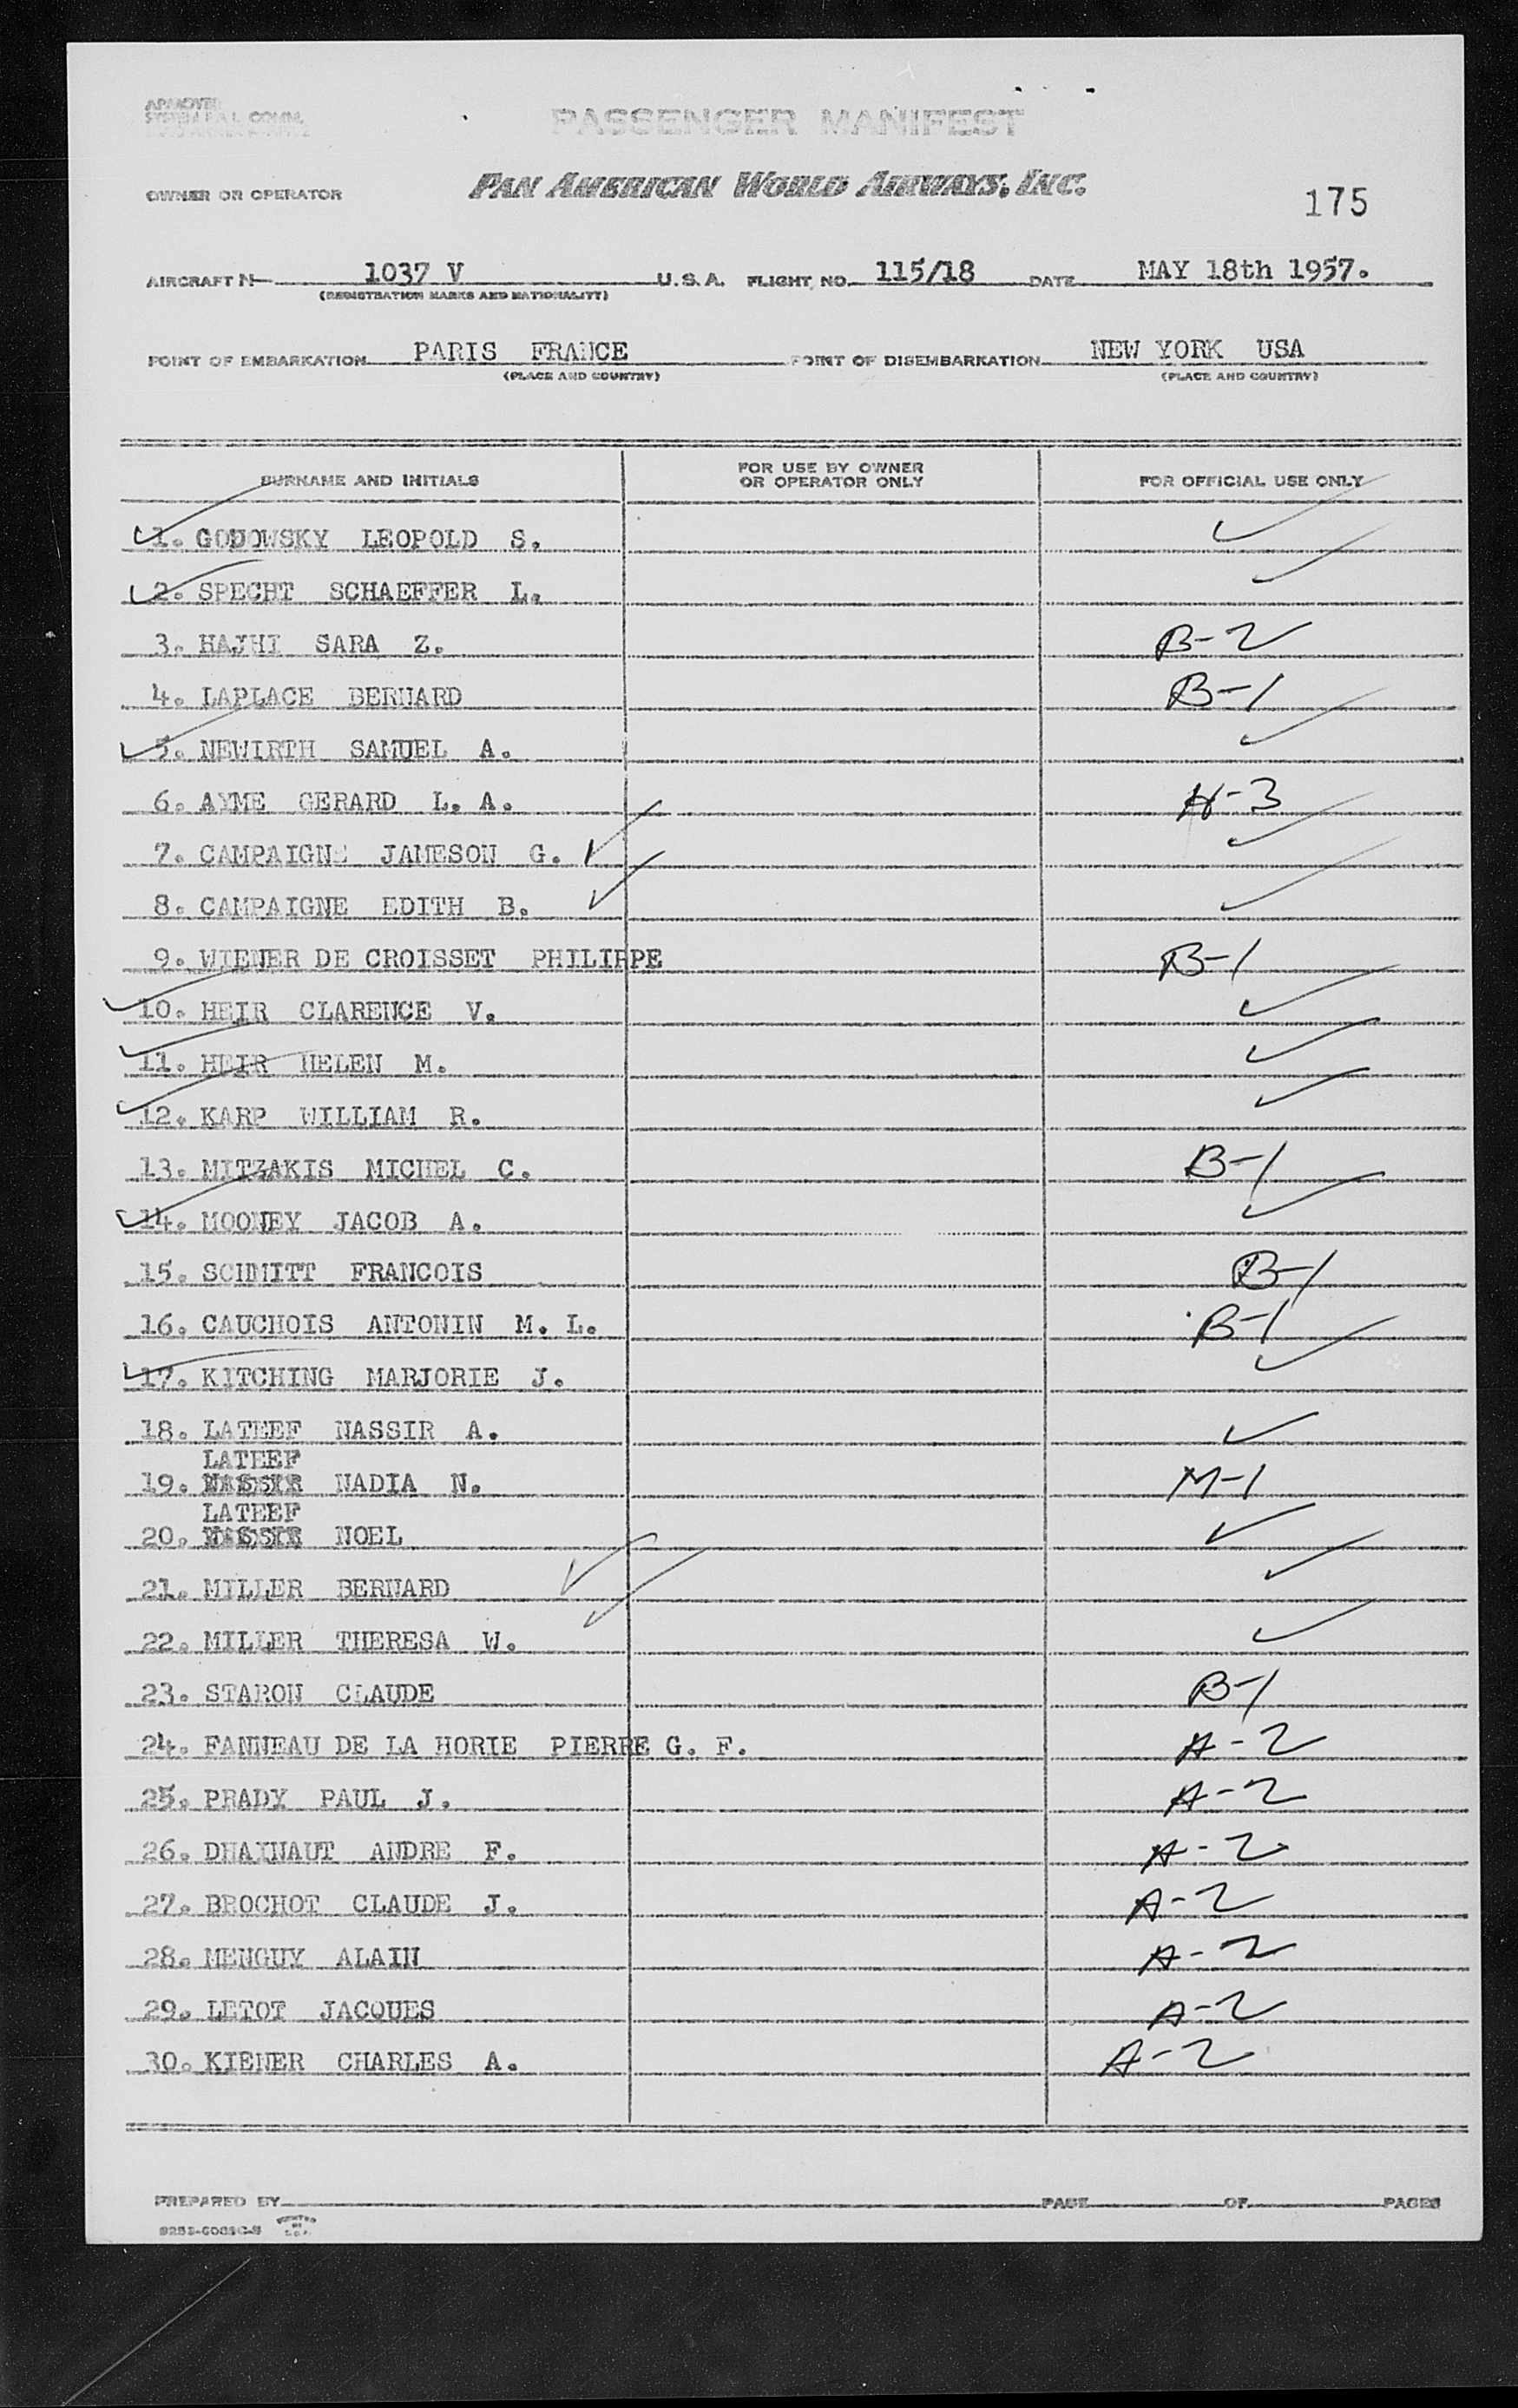 APPROVED
SYSTEM F.A.L. COMM.
PASSENGER MANIFEST
OWNER OR OPERATOR PAN AMERICAN WORLD AIRWAYS, INC.
175
AIRCRAFT N 1037 V U.S.A. FLIGHT NO. 115/18 DATE MAY 18th 1957.
(REGISTRATION MARKS AND NATIONALITY)
POINT OF EMBARKATION PARIS FRANCE POINT OF DISEMBARKATION NEW YORK USA
(PLACE AND COUNTRY) (PLACE AND COUNTRY)
SURNAME AND INITIALS FOR USE BY OWNER OR OPERATOR ONLY FOR OFFICIAL USE ONLY
1. GODOWSKY LEOPOLD S. ✓
2. SPECHT SCHAEFFER L. ✓
3. HAJHI SARA Z. B-2
4. LAPLACE BERNARD B-1
5. NEWIRTH SAMUEL A. ✓
6. AYME GERARD L. A. H-3
7. CAMPAIGNE JAMESON G. ✓
8. CAMPAIGNE EDITH B. ✓
9. WIENER DE CROISSET PHILIPPE B-1
10. HEIR CLARENCE V. ✓
11. HEIR HELEN M. ✓
12. KARP WILLIAM R. ✓
13. MITZAKIS MICHEL C. B-1
14. MOONEY JACOB A. ✓
15. SCHMITT FRANCOIS B-1
16. CAUCHOIS ANTONIN M. L. B-1
17. KITCHING MARJORIE J. ✓
18. LATEEF NASSIR A. ✓
LATEEF
19. NASSIR NADIA N. M-1
LATEEF
20. NASSIR NOEL ✓
21. MILLER BERNARD ✓
22. MILLER THERESA W. ✓
23. STARON CLAUDE B-1
24. FANNEAU DE LA HORIE PIERRE G. F. A-2
25. PRADY PAUL J. A-2
26. DHAINAUT ANDRE F. A-2
27. BROCHOT CLAUDE J. A-2
28. MENGUY ALAIN A-2
29. LETOT JACQUES A-2
30. KIENER CHARLES A. A-2
PREPARED BY PAGE OF PAGES
PRINTED IN U.S.A.